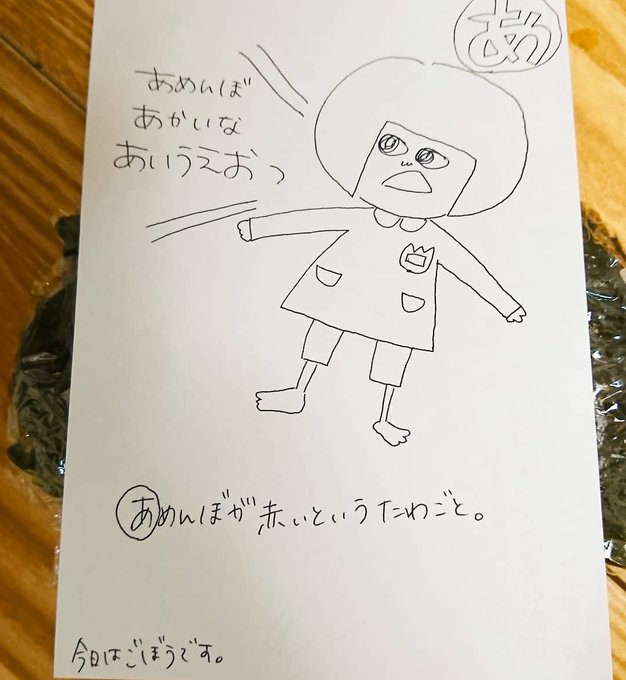 あ
あめんぼ
あかいな
あいうえおっ
あめんぼが赤いというたわごと。
今日はごぼうです。